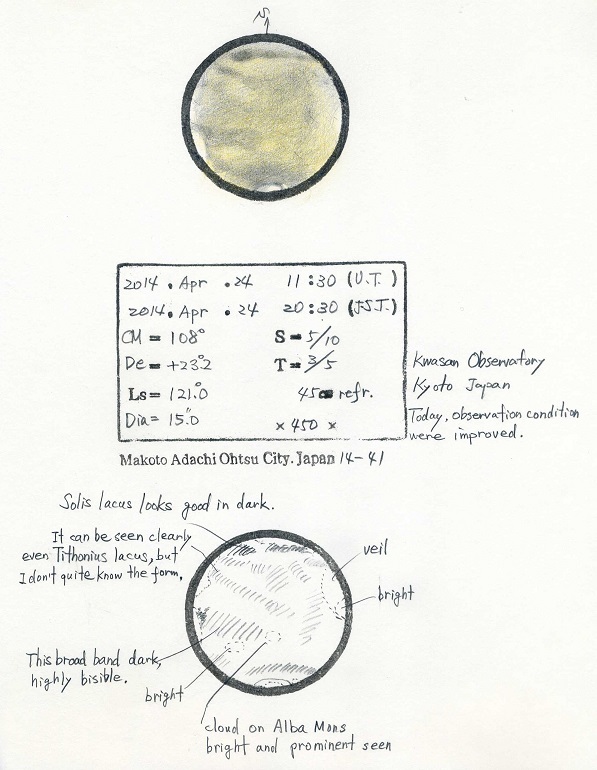 S
2014 . Apr . 24 11:30 (U.T.)
2014. Apr . 24 20:30 (J.S.T.)
CM = 108°
S = 5/10
De = +23°.2
T = 3/5
Ls = 121°.0
45 refr.
Dia = 15".0
× 450 ×
Kwasan Observatory
Kyoto Japan
Today, observation condition
were improved.
Makoto Adachi Ohtsu City. Japan 14-41
Solis lacus looks good in dark.
It can be seen clearly
even Tithonius lacus, but
I don't quite know the form.
veil
bright
This broad band dark,
highly bisible.
bright
cloud on Alba Mons
bright and prominent seen